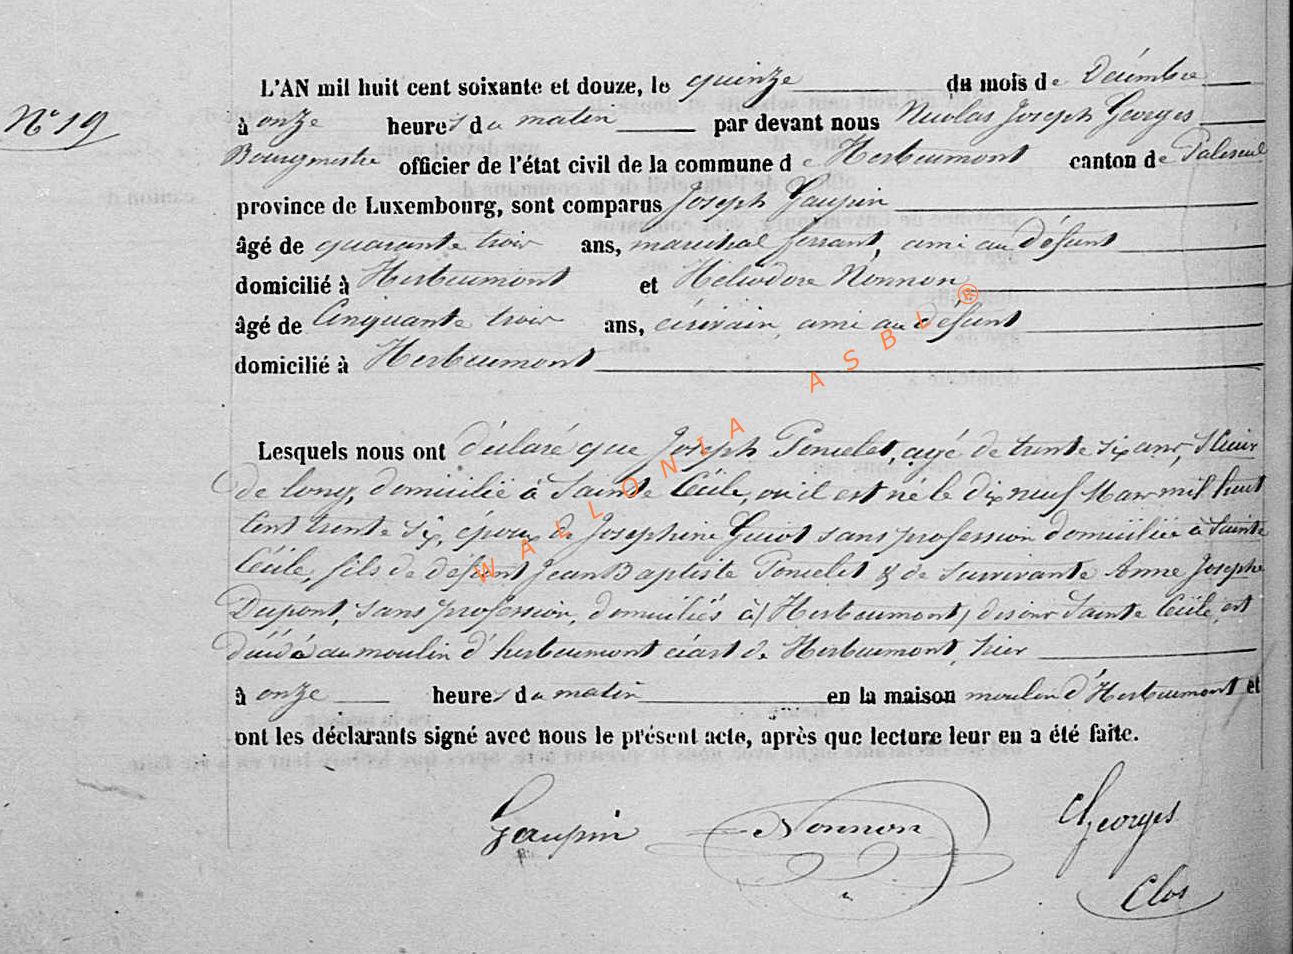 N° 19
L'AN mil huit cent soixante et douze, le quinze du mois de Décembre
à onze heures du matin par devant nous Nicolas Joseph Georges
Bourgmestre officier de l'état civil de la commune de Herbeumont canton de Paliseul
province de Luxembourg, sont comparus Joseph Gaupin
âgé de quarante trois ans, maréchal ferrant, ami au défunt
domicilié à Herbeumont et Héliodore Nonnon
âgé de Cinquante trois ans, écrivain, ami au défunt
domicilié à Herbeumont
Lesquels nous ont déclaré que Joseph Poncelet, agé de trente six ans, Scieur
de long, domicilié à Sainte Cécile, ou il est né le dix neuf Mars mil huit
Cent trente six, époux de Josephine Guiot sans profession domiciliée à Sainte
Cécile, fils de défunt Jean Baptiste Poncelet & de survivante Anne Josephe
Dupont, sans profession, domiciliés à (Herbeumont) disons Sainte Cécile, est
décédé au moulin d'herbeumont écart de Herbeumont, hier
à onze heures du matin en la maison moulin d'Herbeumont et
ont les déclarants signé avec nous le présent acte, après que lecture leur en a été faite.
Gaupin Nonnon Georges
Clos
WALLONIA ASBL ®